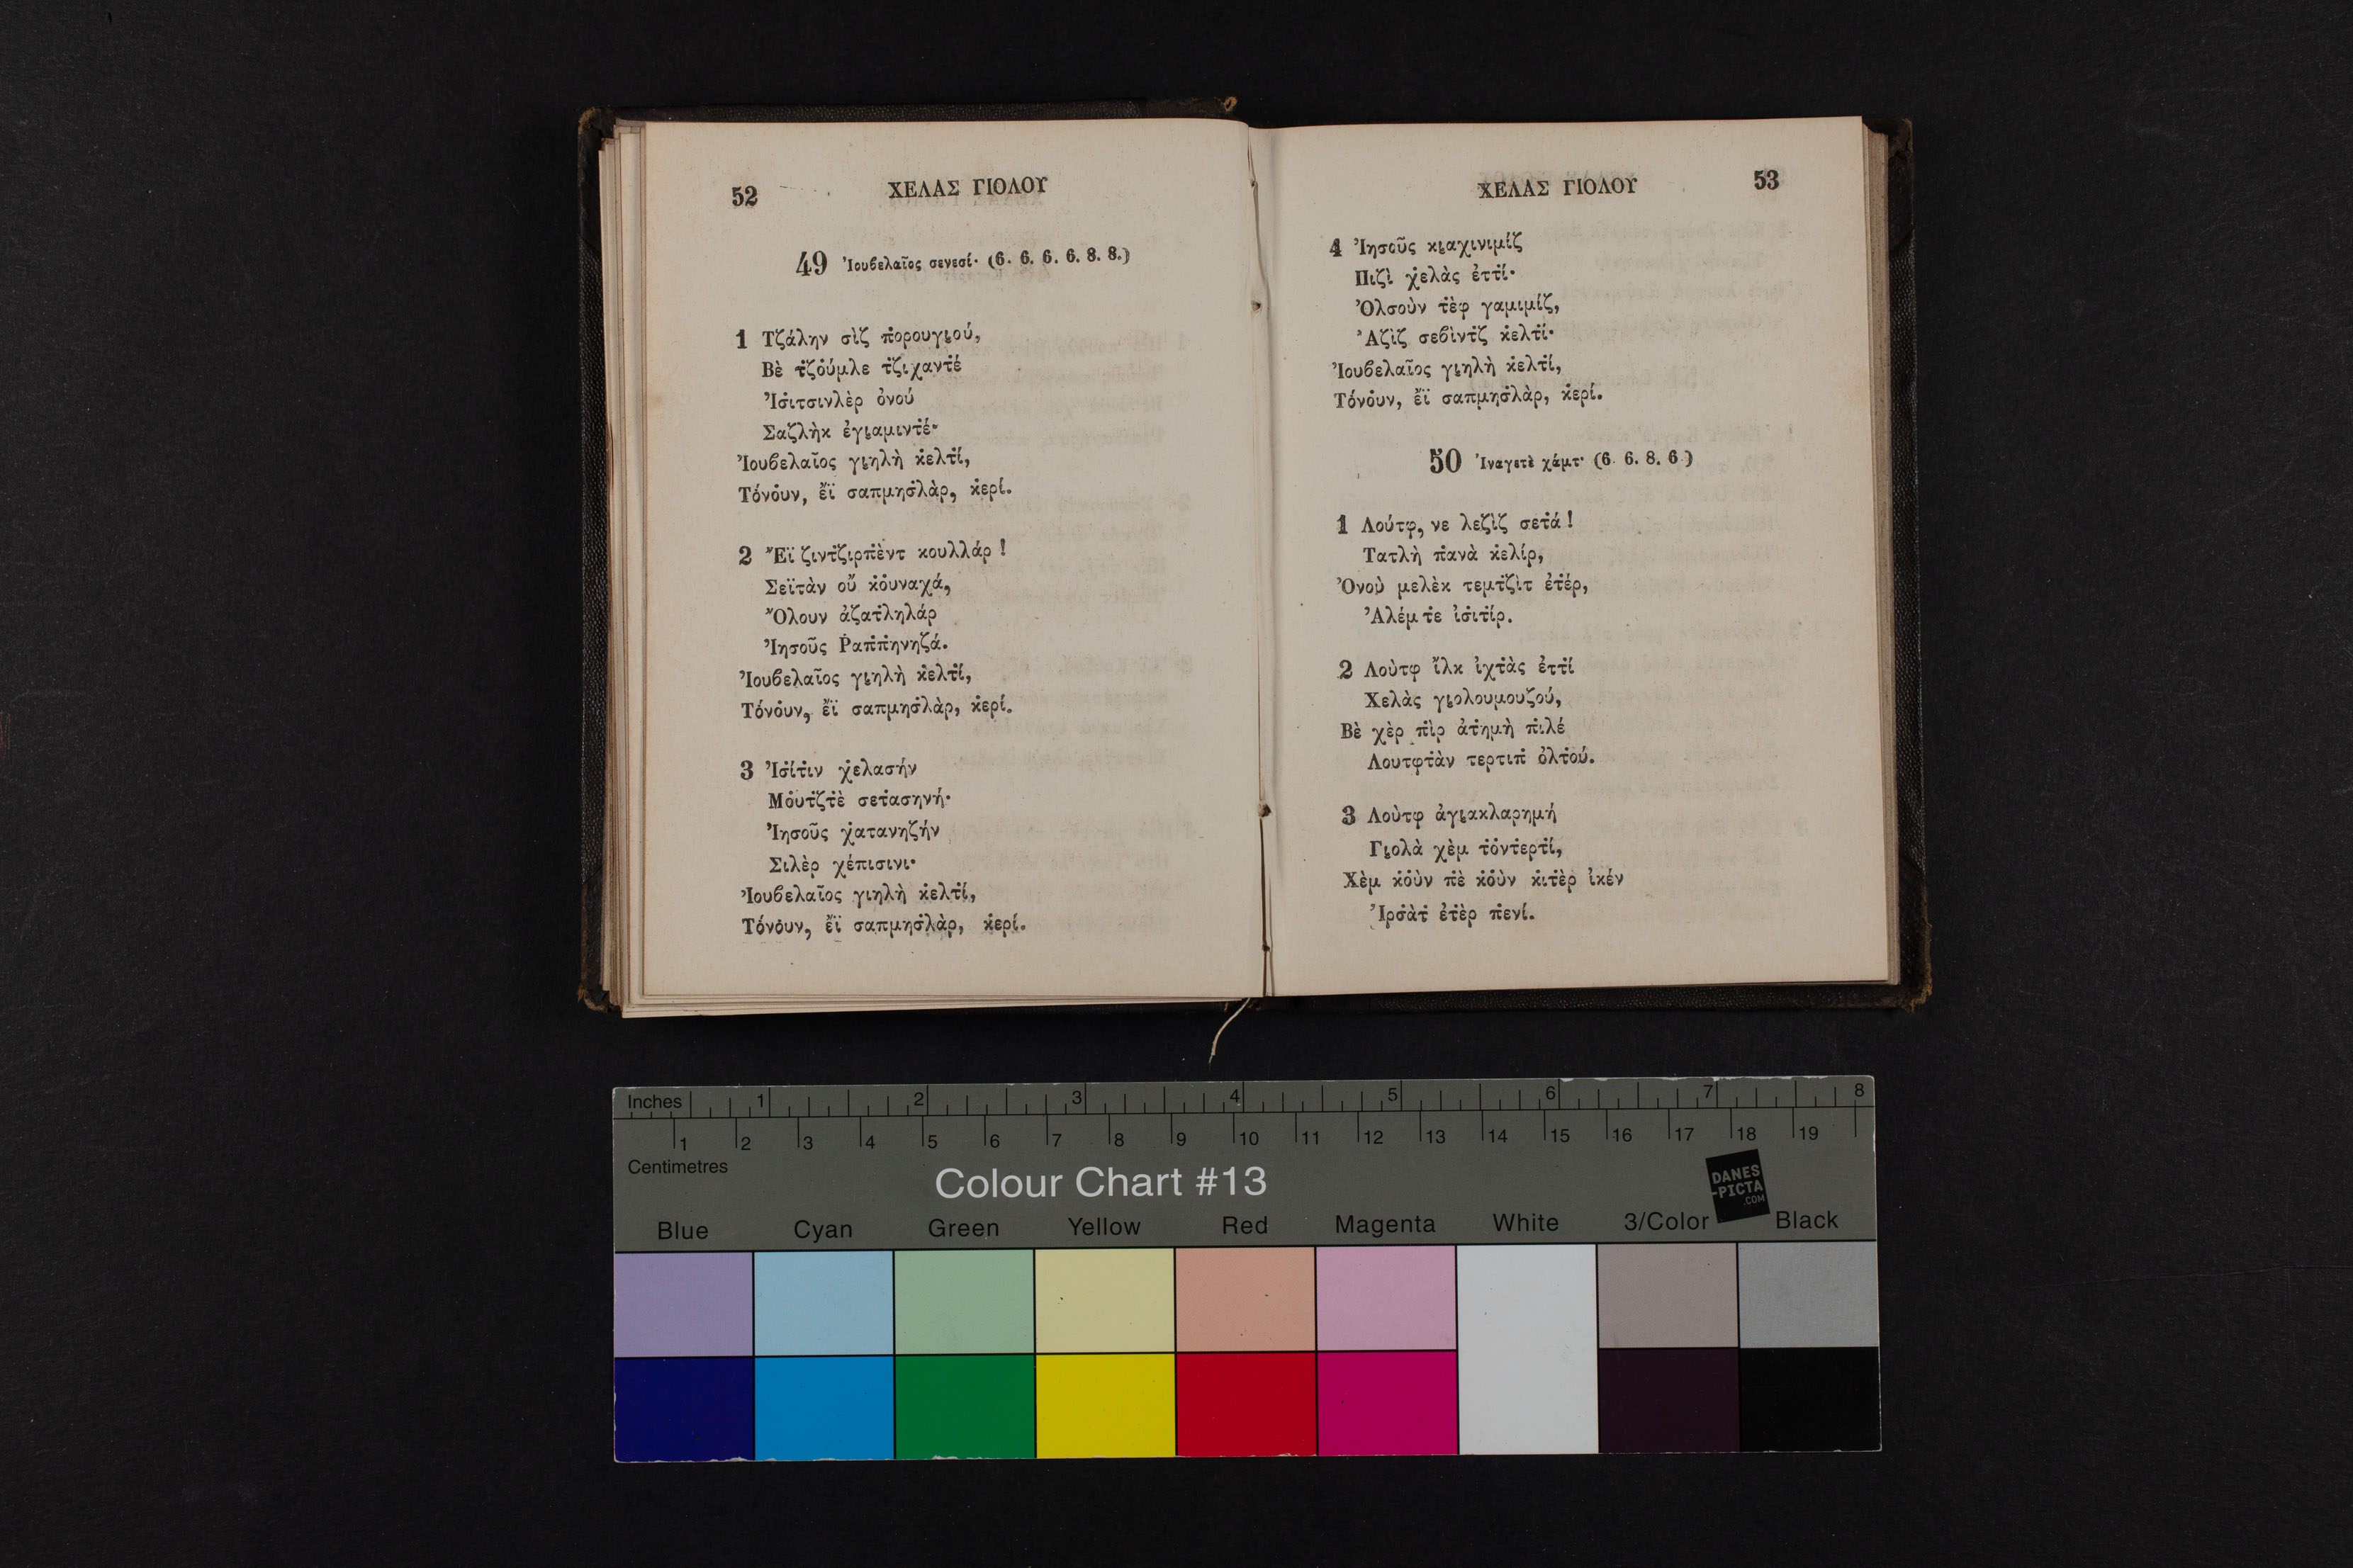 52 ΧΕΛΑΣ ΓΙΟΛΟΥ
49 Ἰουβελαῖος σενεσί· (6. 6. 6. 6. 8. 8.)
1 Τζάλην σὶζ π̇ορουγιού,
Βὲ τ̇ζο̇ύμλε τ̇ζιχαντ̇έ
Ἰσ̇ιτσινλὲρ ὀνού
Σαζλὴκ ἐγιαμιντ̇έ·
Ἰουβελαῖος γιηλὴ κ̇ελτ̇ί,
Τὁνο̇υν, ἔϊ σαπμησ̇λὰρ, κ̇ερί.
2 Ἔϊ ζιντ̇ζιρπ̇ὲντ κουλλάρ !
Σεϊτὰν οὔ κ̇ο̇υναχά,
Ὄλουν ἀζατ̇ληλάρ
Ἰησοῦς Ῥαπ̇π̇ηνηζά.
Ἰουβελαῖος γιηλὴ κ̇ελτ̇ί,
Τόνο̇υν, ἔϊ σαπμησ̇λὰρ, κ̇ερί.
3 Ἰσ̇ίτ̇ιν χ̇ελασήν
Μο̇υτ̇ζτ̇ὲ σετ̇ασηνή·
Ἰησοῦς χ̇ατανηζήν
Σιλὲρ χέπισινι·
Ἰουβελαῖος γιηλὴ κ̇ελτ̇ί,
Τόνο̇υν, ἔϊ σαπμησ̇λὰρ, κ̇ερί.
ΧΕΛΑΣ ΓΙΟΛΟΥ 53
4 Ἰησοῦς κιαχινιμίζ
Πιζὶ χ̇ελὰς ἐττ̇ί·
Ὀλσοὺν τ̇ὲφ γαμιμίζ,
Ἀζὶζ σεβὶντ̇ζ κ̇ελτ̇ί·
Ἰουβελαῖος γιηλὴ κ̇ελτ̇ί,
Τόνο̇υν, ἔϊ σαπμησ̇λὰρ, κ̇ερί.
50 Ἰναγετὲ χάμτ· (6. 6. 8. 6.)
1 Λούτφ, νε λεζὶζ σετ̇ά !
Τατλὴ π̇ανὰ κ̇ελίρ,
Ὀνοὺ μελὲκ τεμτ̇ζὶτ ἐτ̇έρ,
Ἀλέμ τ̇ε ἰσ̇ιτ̇ίρ.
2 Λοὺτφ ἴλκ ἰχτ̇ὰς ἐττ̇ί
Χελὰς γιολουμουζού,
Βὲ χὲρ π̇ὶρ ἀτ̇ημὴ π̇ιλέ
Λουτφτ̇ὰν τερτιπ̇ ὀλτ̇ού.
3 Λοὺτφ ἀγιακλαρημή
Γιολὰ χὲμ τ̇ὁντ̇ερτ̇ί,
Χὲμ κ̇ο̇ὺν π̇ὲ κ̇ο̇ὺν κ̇ιτ̇ὲρ ἰκέν
Ἰρσ̇ὰτ̇ ἐτ̇ὲρ π̇ενί.
Inches 1 2 3 4 5 6 7 8
1 2 3 4 5 6 7 8 9 10 11 12 13 14 15 16 17 18 19
Centimetres
Colour Chart #13
DANES
-PICTA
.COM
Blue Cyan Green Yellow Red Magenta White 3/Color Black